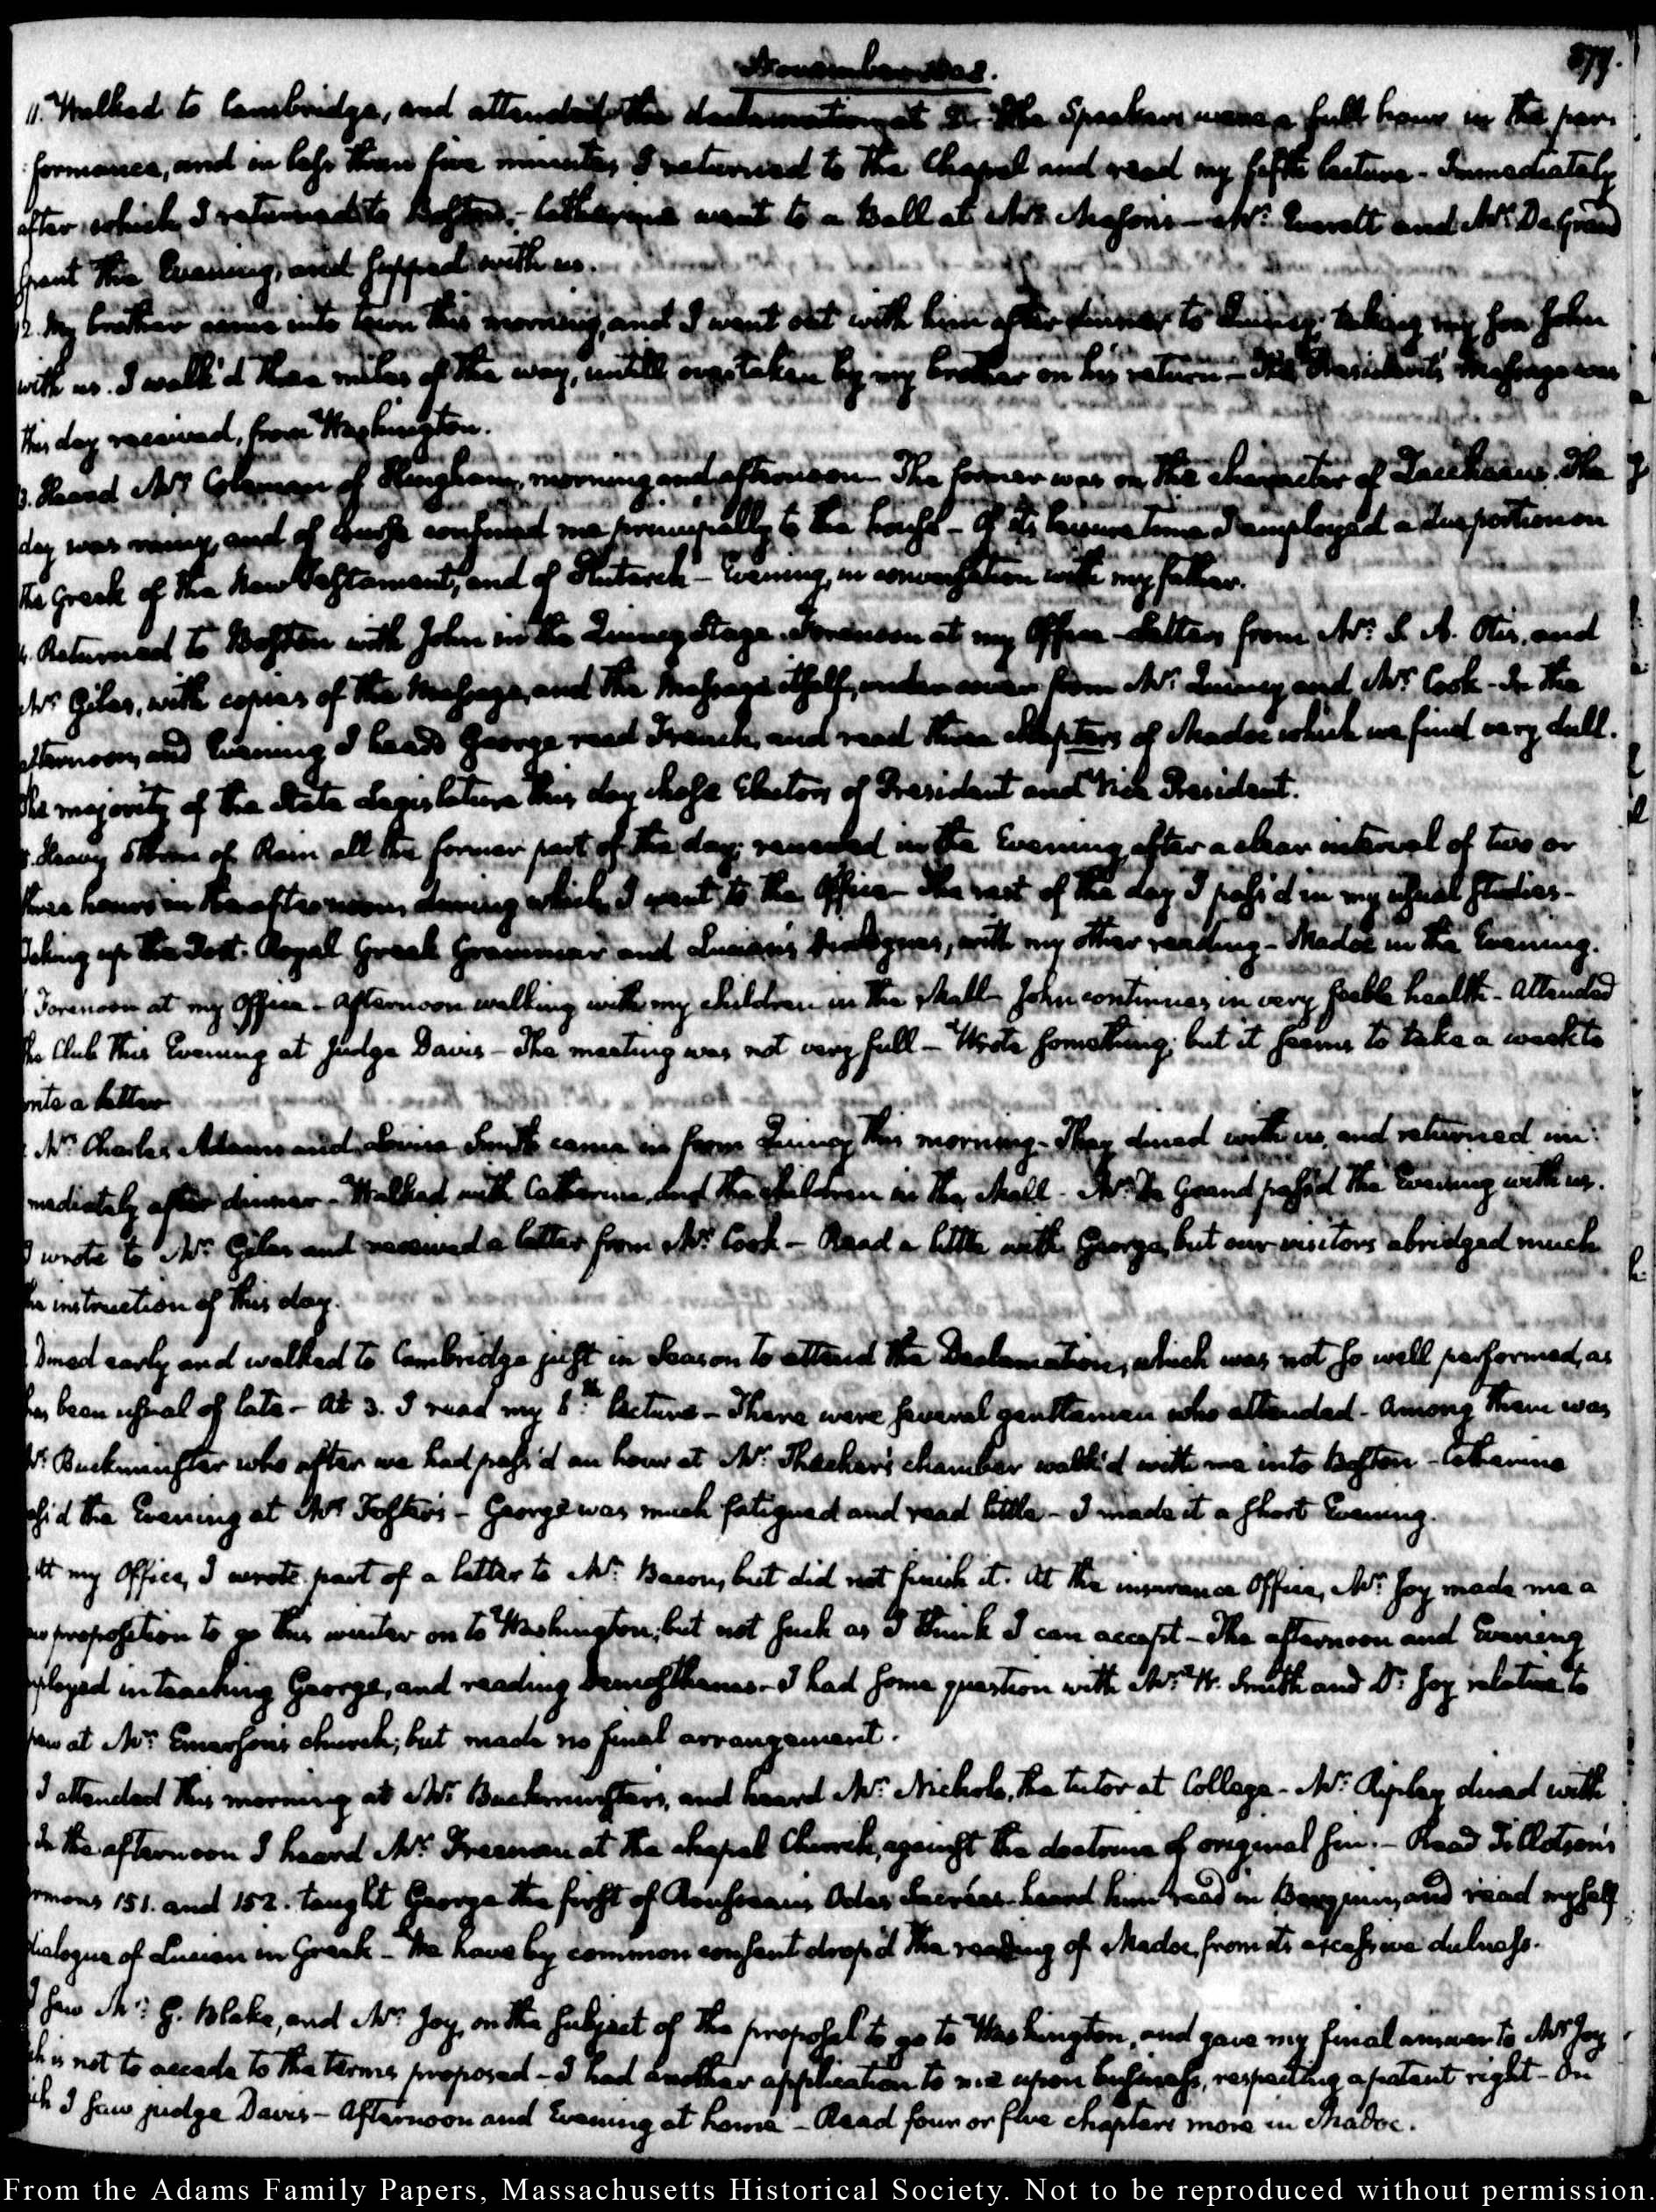 November 1808.
379.
11. Walked to Cambridge, and attended the declamation at 2. The Speakers were a full hour in the per-
formance, and in less than five minutes I returned to the Chapel and read my fifth lecture - Immediately
after which I returned to Boston. - Catherine went to a Ball at Mrs. Mason's - Mr. Everett and Mr. De Grand
spent the Evening, and supped with us.
12. My brother came into town this morning, and I went out with him after dinner to Quincy; taking my son John
with us. I walk'd three miles of the way, untill overtaken by my brother on his return - The President's Message was
this day received, from Washington.
3. Heard Mr. Coleman of Hingham, morning and afternoon - The former was on the character of Zacchaeus. The
day was rainy, and of course confined me principally to the house - Of its leisure time I employed a due portion on
the Greek of the New Testament, and of Plutarch - Evening, in conversation with my father.
4. Returned to Boston with John in the Quincy Stage. Forenoon at my Office - Letters from Mr. S. A. Otis, and
Mr. Giles, with copies of the Message, and the Message itself, under cover from Mr. Quincy and Mr. Cook - In the
afternoon, and Evening I heard George read French, and read three chapters of Madoc which we find very dull.
The majority of the State Legislature this day chose Electors of President and Vice President.
5. Heavy Storm of Rain all the former part of the day; renewed in the Evening, after a clear interval of two or
three hours in the afternoon, during which I went to the Office - The rest of the day I pass'd in my usual studies -
Taking up the Port-Royal Greek Grammar and Lucian's Dialogues, with my other reading - Madoc in the Evening.
Forenoon at my Office - Afternoon walking with my children in the Mall - John continues in very feeble health - Attended
the Club this Evening at Judge Davis - The meeting was not very full - Wrote something; but it seems to take a week to
write a letter
Mrs. Charles Adams and Louisa Smith came in from Quincy this morning - They dined with us, and returned im-
mediately after dinner - Walked with Catherine, and the children in the Mall - Mr. De Grand pass'd the Evening with us.
I wrote to Mr. Giles and received a letter from Mr. Cook - Read a little with George, but our visitors abridged much
the instruction of this day.
Dined early and walked to Cambridge just in Season to attend the Declamation, which was not so well performed, as
has been usual of late - At 3. I read my 6th. lecture - There were several gentlemen who attended - Among them was
Mr. Buckminster who after we had pass'd an hour at Mr. Thacher's chamber walk'd with me into Boston - Catherine
pass'd the Evening at Mr. Foster's - George was much fatigued and read little - I made it a short Evening.
At my Office, I wrote part of a letter to Mr. Bacon, but did not finish it. At the insurance Office, Mr. Joy made me a
new proposition to go this winter on to Washington; but not such as I think I can accept - The afternoon and Evening
employed in teaching George, and reading Demosthenes - I had some question with Mr. W. Smith and Dr. Joy relative to
pew at Mr. Emerson's church; but made no final arrangement.
I attended this morning at Mr. Buckminster's, and heard Mr. Nichols, the tutor at College - Mr. Ripley dined with
In the afternoon I heard Mr. Freeman at the chapel Church, against the doctrine of original sin. - Read Tillotson's
sermons 151. and 152. taught George the first of Rousseau's Odes Sacrées - heard him read in Berquin, and read myself
dialogue of Lucian in Greek - We have by common consent drop'd the reading of Madoc, from its excessive dulness.
I saw Mr. G. Blake, and Mr. Joy, on the subject of the proposal to go to Washington, and gave my final answer to Mr. Joy
which is not to accede to the terms proposed - I had another application to me upon business, respecting a patent right - On
which I saw judge Davis - Afternoon and Evening at home - Read four or five chapters more in Madoc.
From the Adams Family Papers, Massachusetts Historical Society. Not to be reproduced without permission.